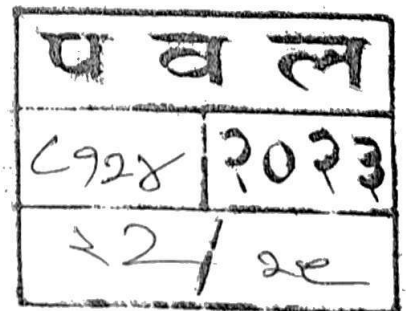 प व ल
८१२४ २०२३
२२/२९